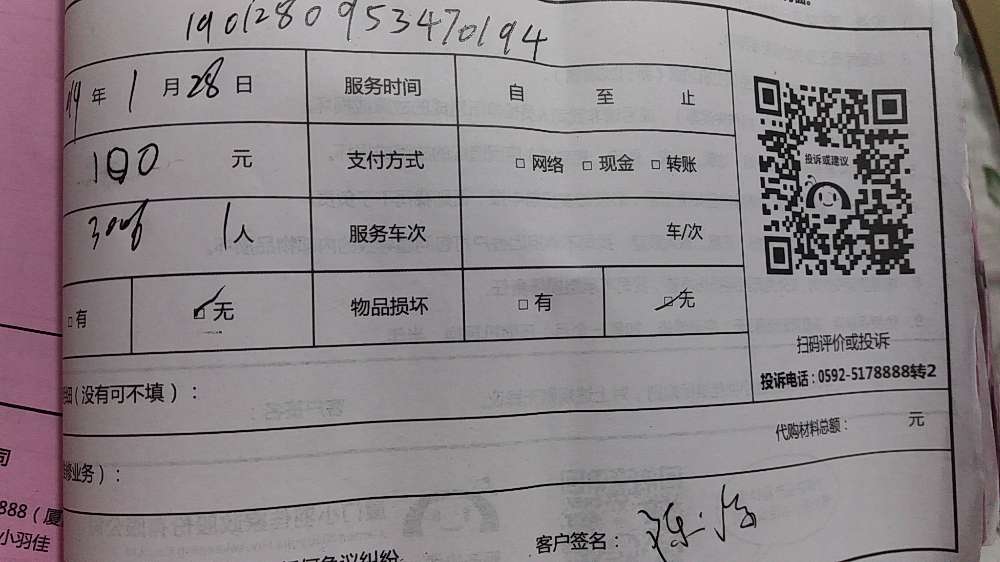 190128095347０194
19年1月28日 服务时间 自 至 止
190 元 支付方式 □网络 □现金 □转账
1人 服务车次 车/次
□有 ☑无 物品损坏 □有 ☑无
投诉或建议
扫码评价或投诉
投诉电话：0592-5178888转2
细(没有可不填)：
代购材料总额： 元
修业务)：
司
888（厦
小羽佳
客户签名：
何争议纠纷